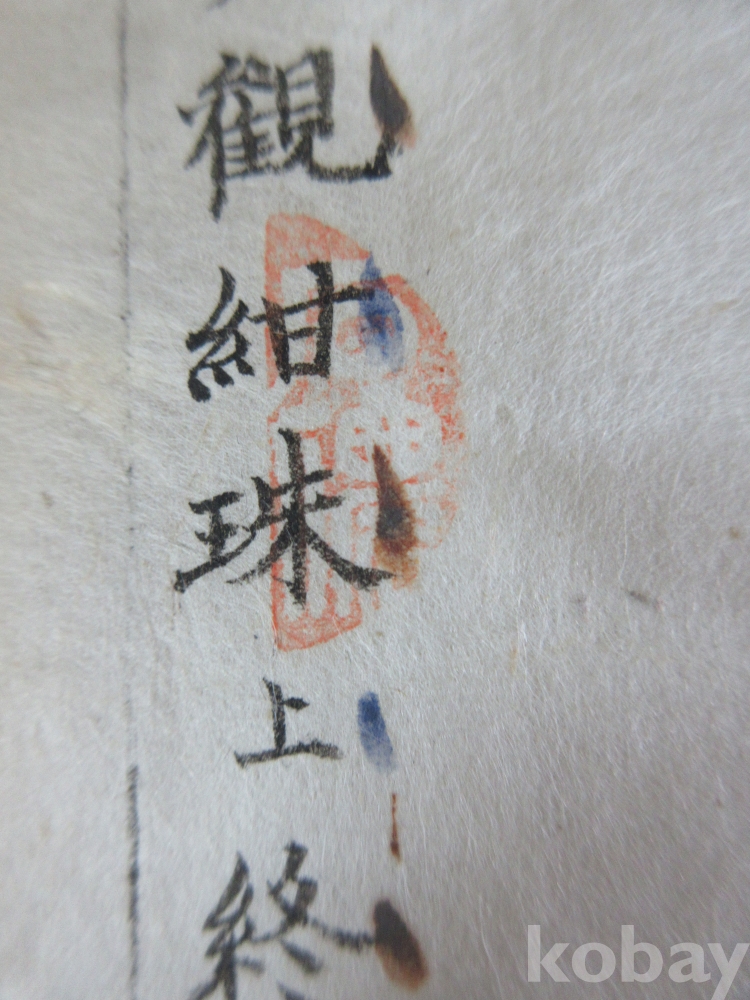 觀紺珠上終
kobay